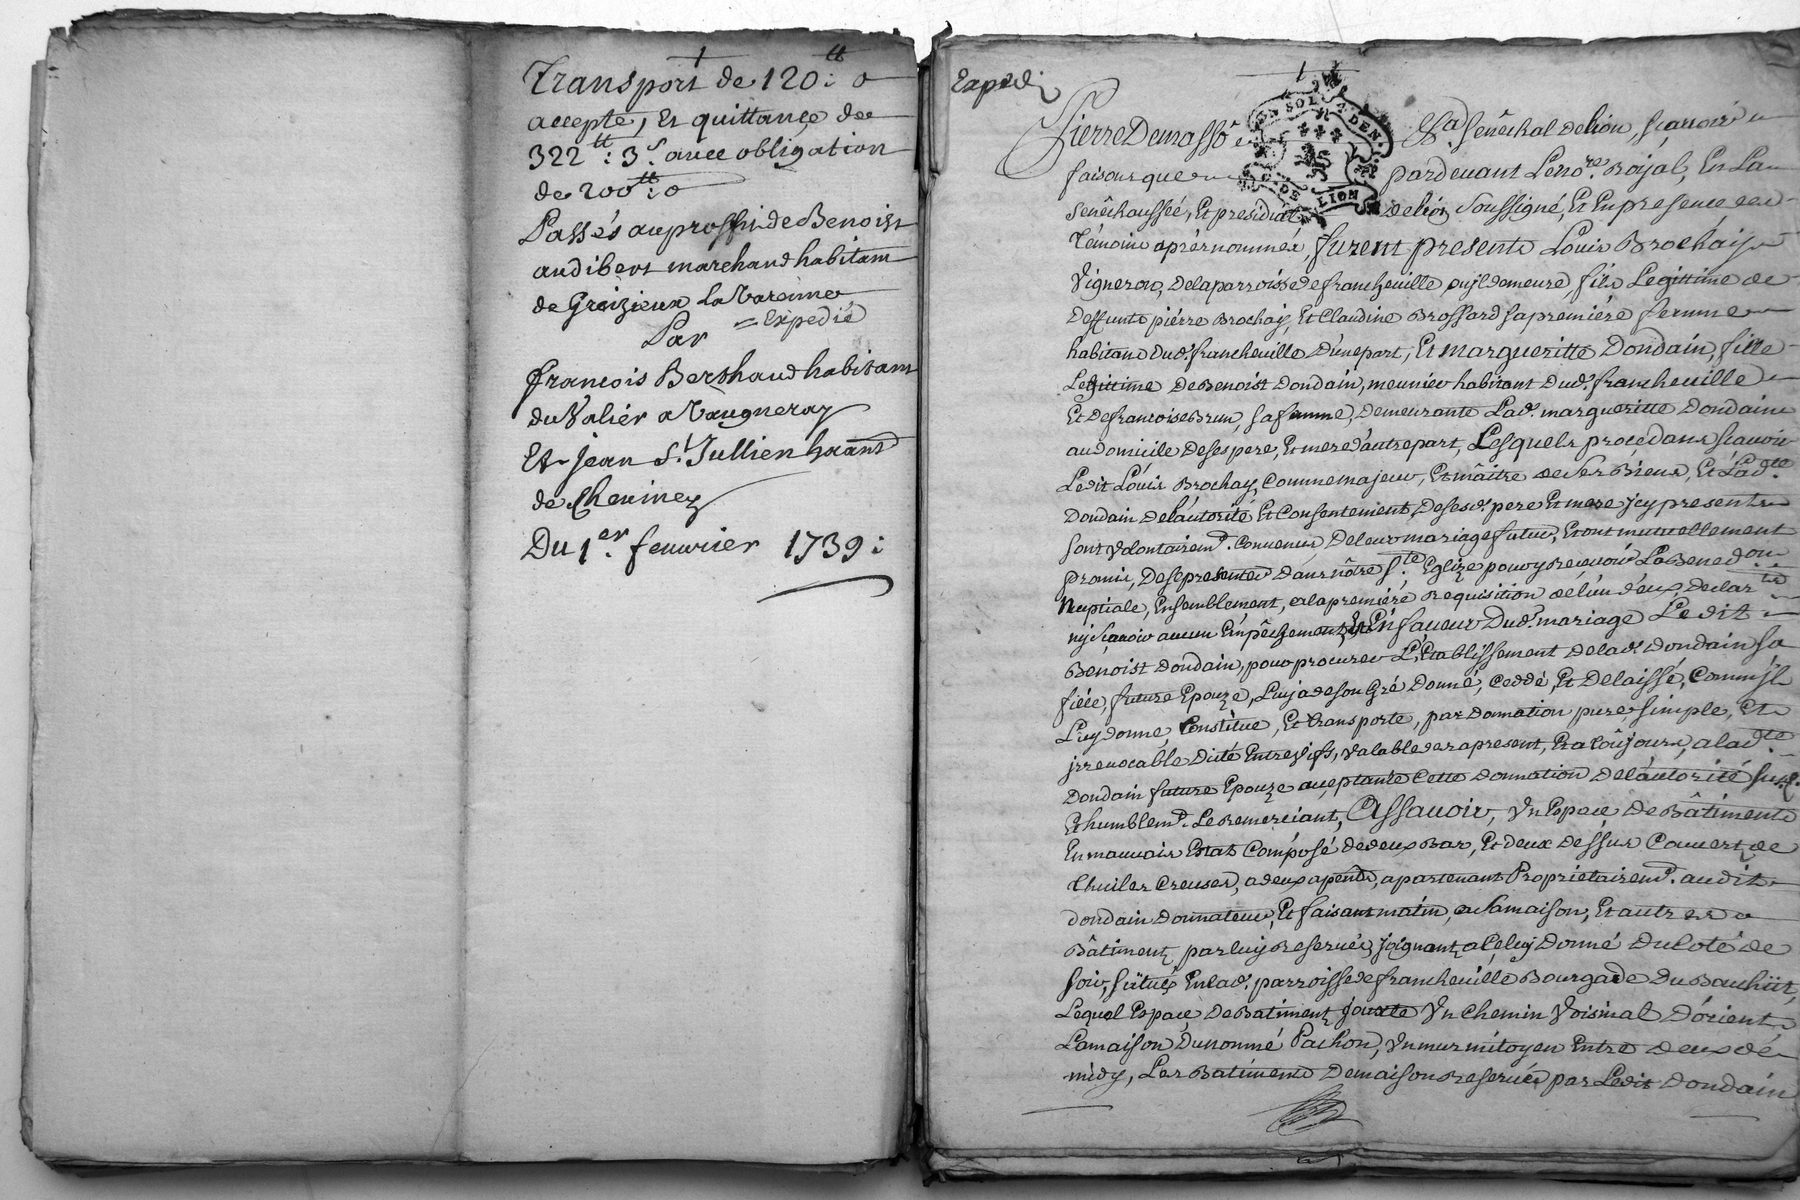 1
Transport de 120:tt o
accepté, Et quittance de
322tt: 3s avec obligation
de 200tt: o
Passés au proffit de Benoist
audibert marchand habitant
de Greizieux la Varenne
= Expedié
Par
françois Berthaud habitant
du Valier a Vaugneray
Et jean St. Jullien
de Cheviney
Du 1er. feuurier 1739:
Expedié
1
UN SOL 4. DEN.
G. DE LION
Pierre Demasso Sal. Senêchal de lion, sçauoir
faisons que pardevant Le nore. Royal, En La
Senêchaussée, Et presidial de lion Soussigné, Et En presence des
témoins aprés nommés, furent presents Louis Brochay
Vigneron, de la parroisse de francheuille ou jl demeure, fils Legittime de
deffunts piérre Brochay, Et Claudine Brossard sa premiére femme
habitans dud. francheuille d'une part, Et margueritte Dondain, fille
Legittime de Benoist dondain, meunier habitant dud. francheuille
Et de francoise Brun, sa femme, demeurante Lad. margueritte Dondain
au domicile de ses pere, Et mere d'autre part, Lesquels procedans sçauoir
Ledit Loüis Brochay, Comme majeur, Et maître de ses Biens, Et Lade.
Dondain de l'autorité Et Consentement, de sesd. pere Et mere jcy presents
sont volontairemt. Convenus de leur mariage futur, Et ont mutuellement
promis, de se presenter dans nôtre Ste. Eglize pour y receuoir La Benedon.
Nuptiale, Ensemblement, a la premiére requisition de l'un d'eux, declarts
ny sçauoir aucun Empêchement, Et En faueur dud. mariage Ledit
Benoist dondain, pour procurer L'Etablissement de lad. dondain sa
fille, future Epouze, Luy a de son Gré Donné, Ceddé, Et Delaissé, Comm'jl
Luy donne, Constitue, Et transporte, par donnation pure, simple, Et
jrreuocable ditte Entre vifs, valable des a present, Et a toûjours, a lade.
Dondain future Epouze acceptante Cette donnation de l'autorité susd.
Et humblemt. Le Remerciant, Assauoir, Un Espace de Bâtiments
En mauvais Estat Composé de deux Bas, Et deux dessus Couvert de
thuiles Creuses, a deux apends, apartenant Proprietairemt. audit
dondain donnateur, Et faisant matin, a sa maison, Et autres
Bâtiments par luy Reserués, joignants a Celuy Donné du Coté de
soir, sçitués En lad. parroisse de francheuille Bourgade du Bachüt,
Lequel Espace de Batiments jouxte Un Chemin Voisinal d'orient
La maison du nommé Pachon, Un mur mitoyen Entre deux de
midy, Les Batiments de maison Reserués par Ledit dondain